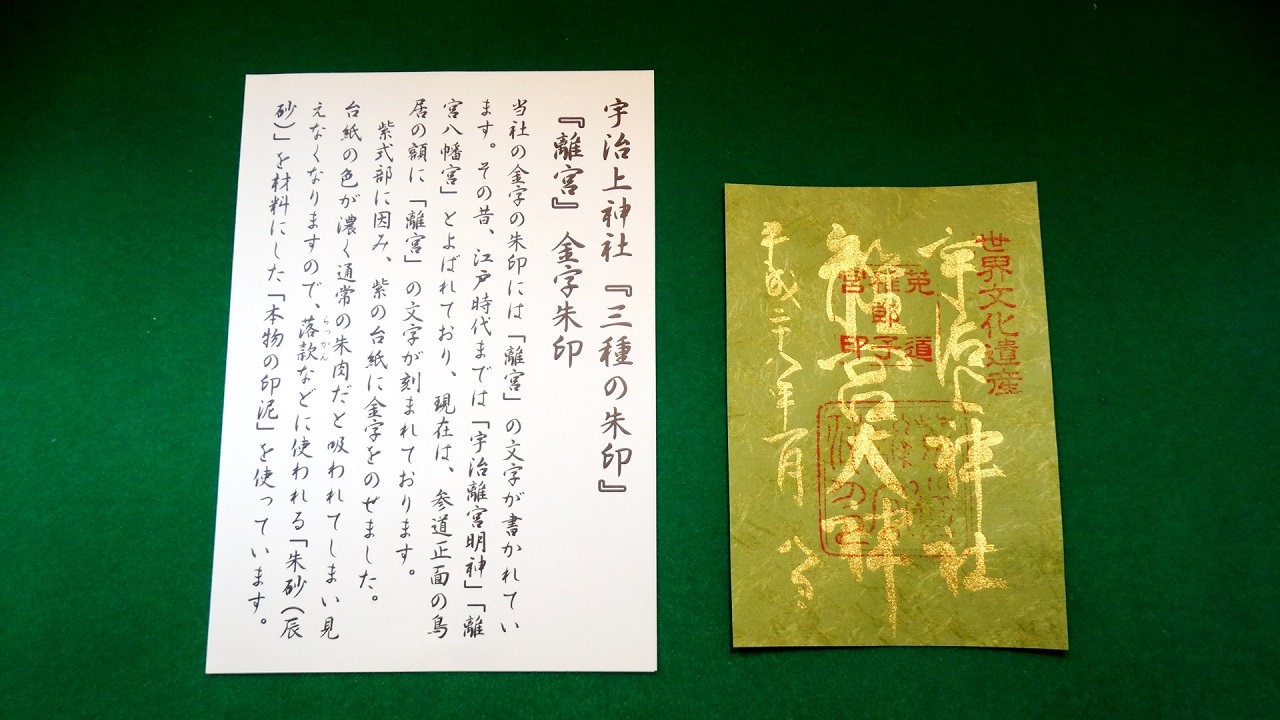 宇治上神社『三種の朱印』
『離宮』金字朱印
当社の金字の朱印には「離宮」の文字が書かれてい
ます。その昔、江戸時代までは「宇治離宮明神」「離
宮八幡宮」とよばれており、現在は、参道正面の鳥
居の額に「離宮」の文字が刻まれております。
紫式部に因み、紫の台紙に金字をのせました。
台紙の色が濃く通常の朱肉だと吸われてしまい見
えなくなりますので、落款などに使われる「朱砂(辰
らっかん
砂)」を材料にした「本物の印泥」を使っています。
世界文化遺産
宇治上神社
菟道
稚郎子
宮印
離宮大神
平成二十八年一月八日